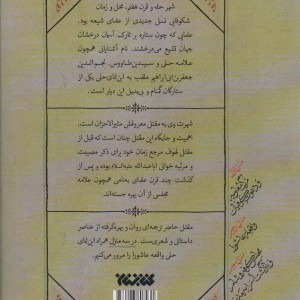 شهر حله و قرن هفتم، محل و زمان
شکوفایی نسل جدیدی از علمای شیعه بود.
علمایی که چون ستاره بر تارک آسمان درخشان
جهان تشیع می‌درخشند. نام آشنایانی همچون
علامه حلی و سیدبن طاووس. نجم‌الدین
جعفربن ابی‌ابراهیم ملقب به ابن‌نمای حلی یکی از
ستارگان گمنام و بی‌بدیل این دیار است.
شهرت وی به مقتل معروفش مثیرالاحزان است.
اهمیت و جایگاه این مقتل چنان است که قبل از
مقتل لهوف مرجع زمان خود برای ذکر مصیبت
و مرثیه خوانی اباعبدالله علیه‌السلام بوده و پس از
گذشت چند قرن علمای به‌نامی همچون علامه
مجلسی از آن بهره جسته‌اند.
مقتل حاضر ترجمه‌ای روان و بهره‌گرفته از عناصر
داستانی و شعری‌ست. در سه منزل همراه ابن‌نمای
حلی واقعه عاشورا را مرور می‌کنیم.